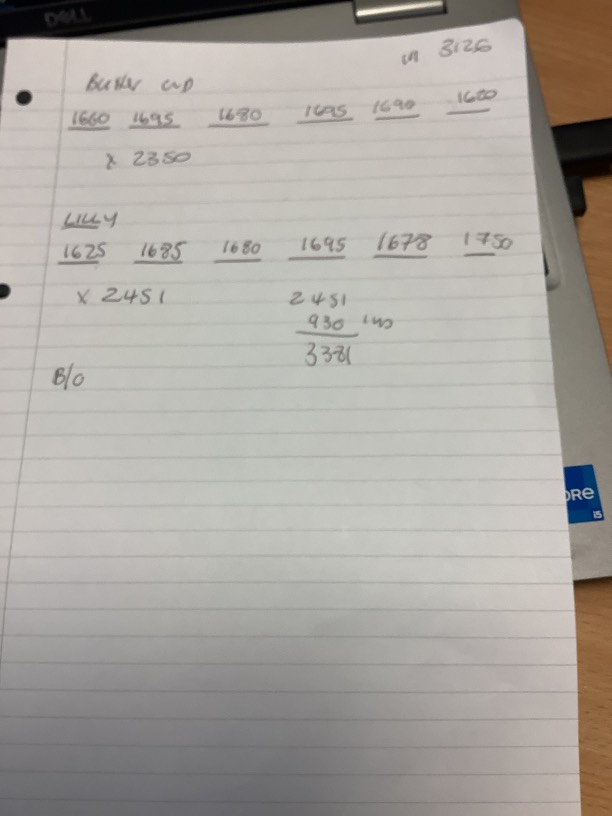 DELL
in 3126
1660 1695 1680 1695 1690 1680
x 2350
LILLY
1625 1685 1680 1695 1678 1750
x 2451 2451
930
3381
B/O
ORe
i5